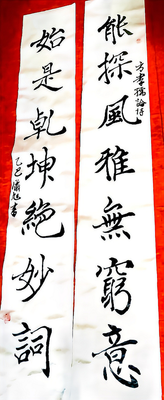 能探風雅無窮意
方孝孺論詩
始是乾坤絕妙詞
乙巳
書